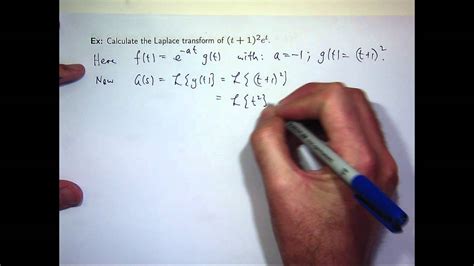 Ex: Calculate the Laplace transform of (t + 1)²eᵗ.
Here f(t) = e⁻ᵃᵗ g(t) with: a = -1; g(t) = (t+1)².
Now G(s) = L{g(t)} = L{(t+1)²}
= L{t²}